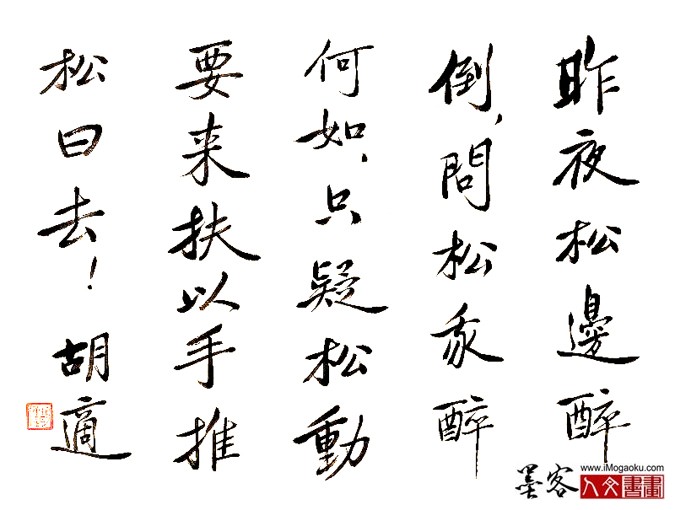 昨夜松邊醉
倒,問松我醉
何如,只疑松動
要来扶以手推
松曰去!胡適
墨客
www.iMogaoku.com
人文書畫